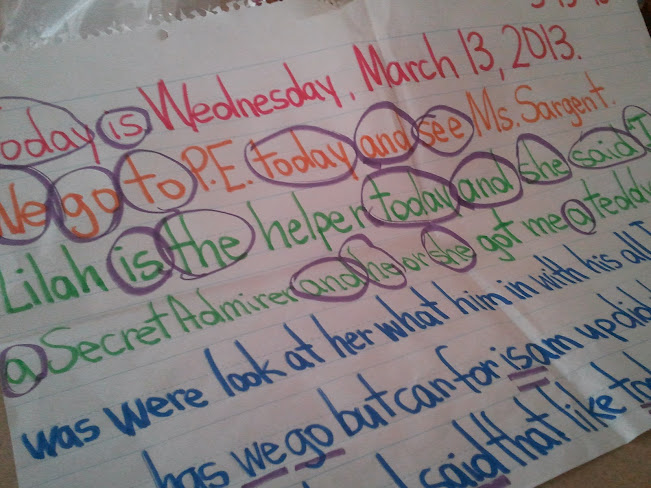 Today is Wednesday, March 13, 2013.
We go to P.E. today and see Ms. Sargent.
Lilah is the helper today and she said I
a Secret Admirer and he or she got me a teddy
was were look at her what him in with his all
has we go but can for is am up did
said that like